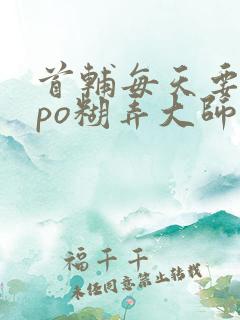 首輔每天要
po糊弄大師
福千千
未經同意禁止轉載